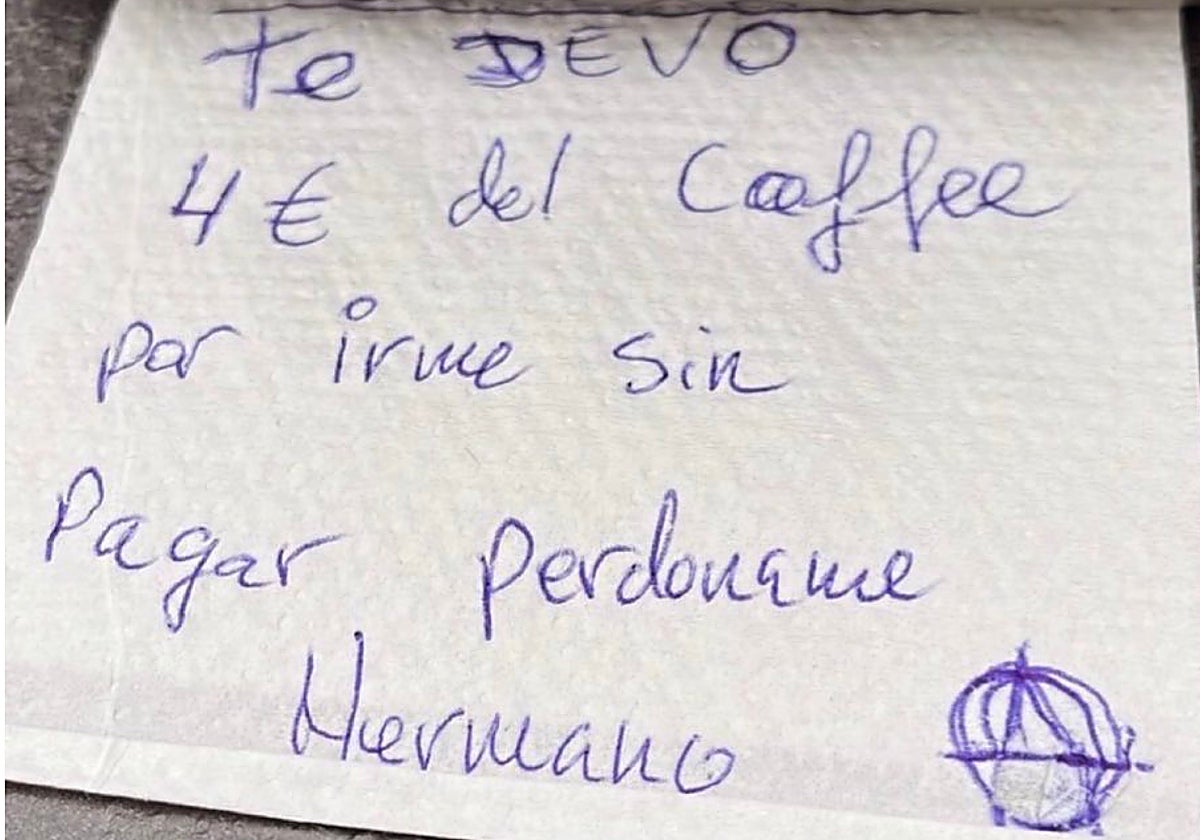 Te DEVO
4€ del Caffee
por irme sin
Pagar perdoname
Hermano